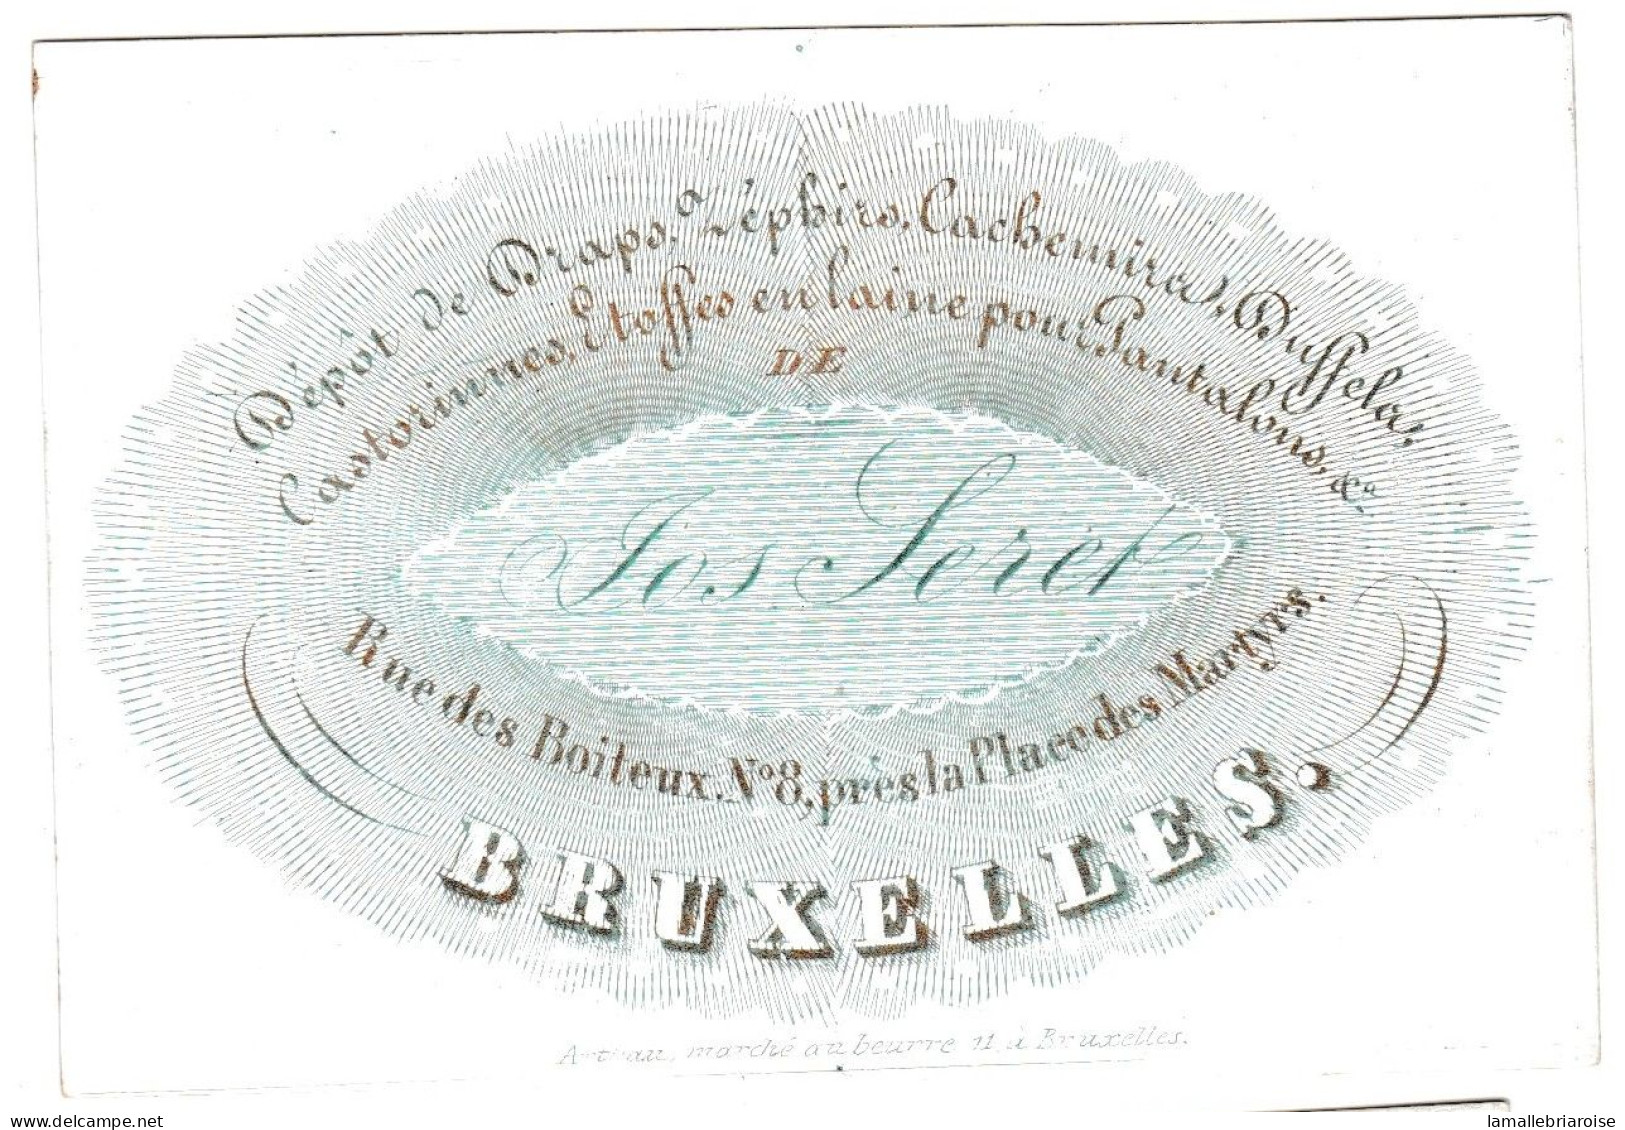 Dépôt de Draps, Zéphirs, Cachemirs, Duffels,
Castorinnes, Etoffes en laine pour Pantalons, &a
DE
Jos. Seret
Rue des Boiteux, No 8, près la Place des Martyrs.
BRUXELLES.
marché au beurre 11, à Bruxelles.
lamallebriaroise
www.delcampe.net